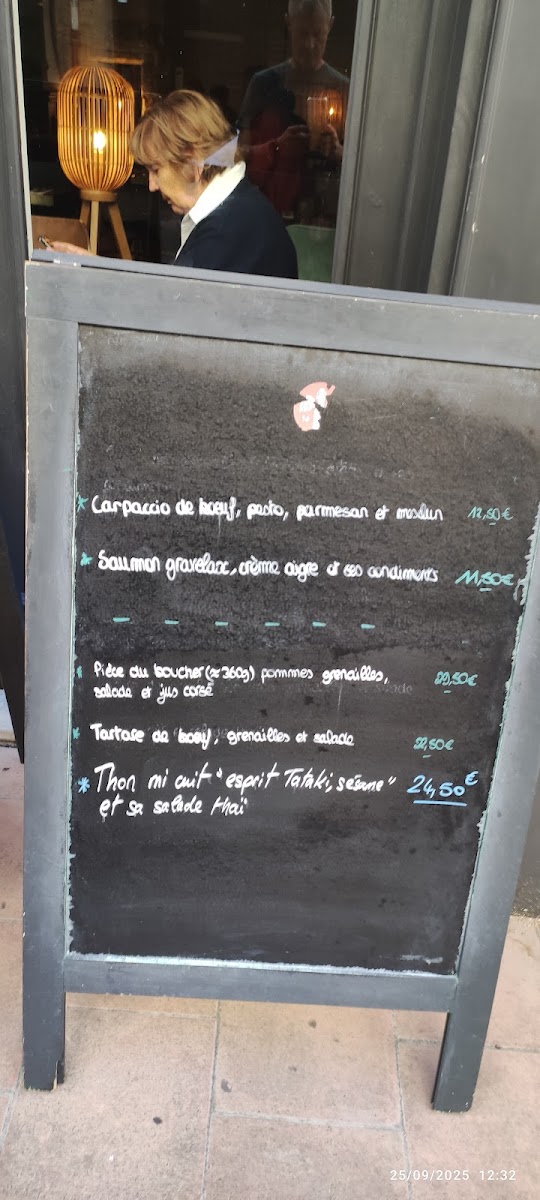 * Carpaccio de boeuf, pesto, parmesan et mesclun 12,50€
* Saumon gravelax, crème aigre et ses condiments 11,50€
- - - - - -
* Pièce du boucher (≈360g) pommes grenailles, 29,50€
salade et jus corsé
* Tartare de boeuf, grenailles et salade 22,50€
* Thon mi cuit "esprit Tataki, sésame" 24,50€
et sa salade thaï
25/09/2025 12:32